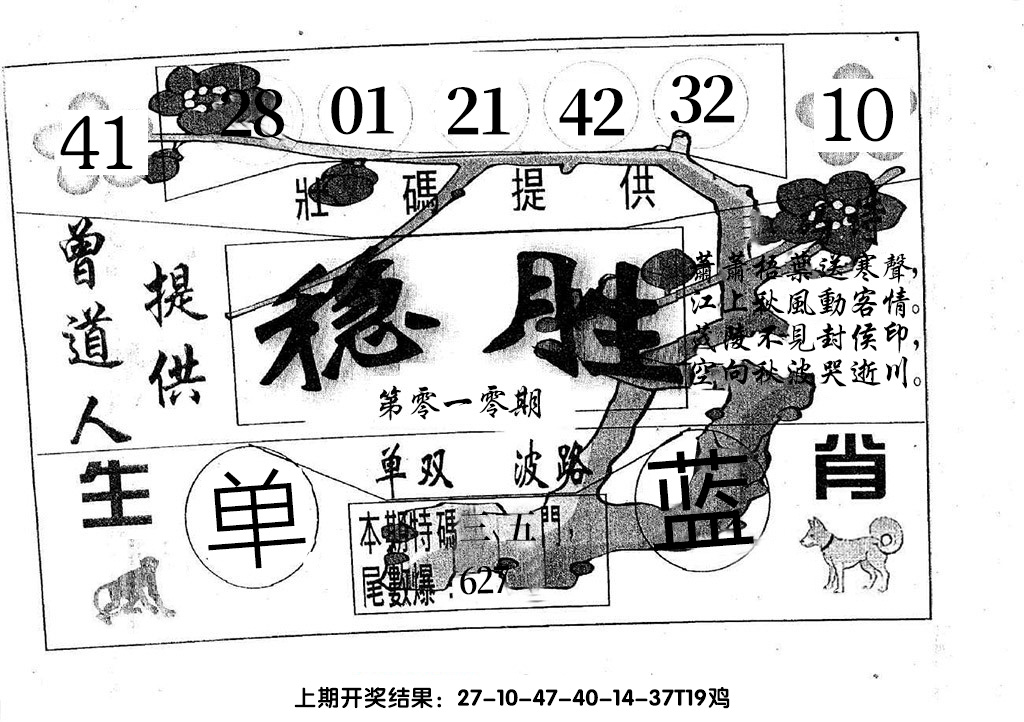 41 28 01 21 42 32 10
壯碼提供
曾道人
提供
稳胜
第零一零期
蕭蕭梧葉送寒聲，
江上秋風動客情。
茂陵不見封侯印，
空向秋波哭逝川。
单双 波路
生肖
单
蓝
本期特碼三、五門，
尾數爆：627
上期开奖结果：27-10-47-40-14-37T19鸡